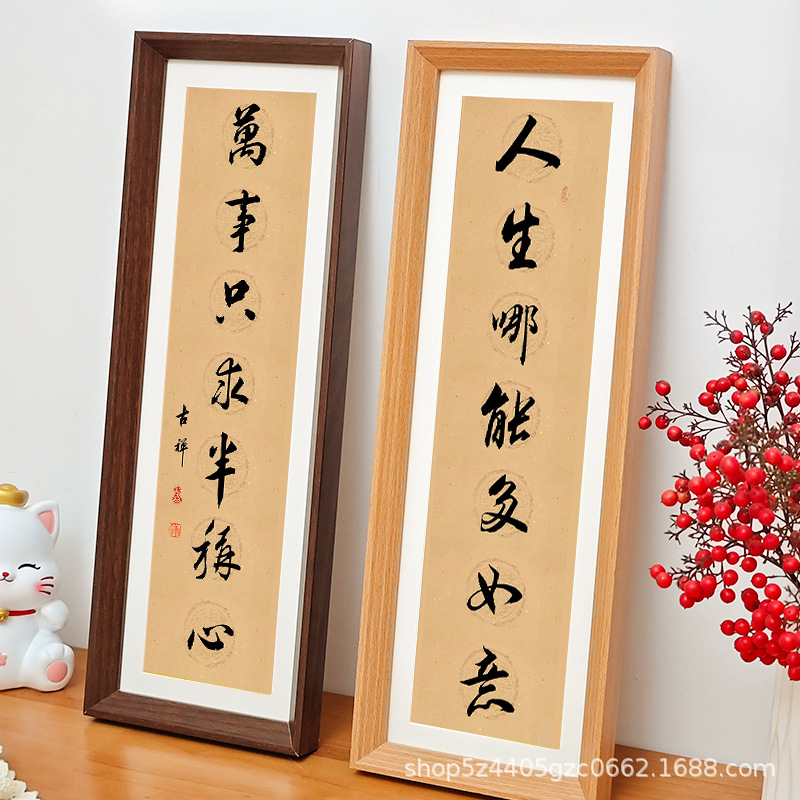 人生哪能多如意
萬事只求半稱心
吉祥
shop5z4405gzc0662.1688.com